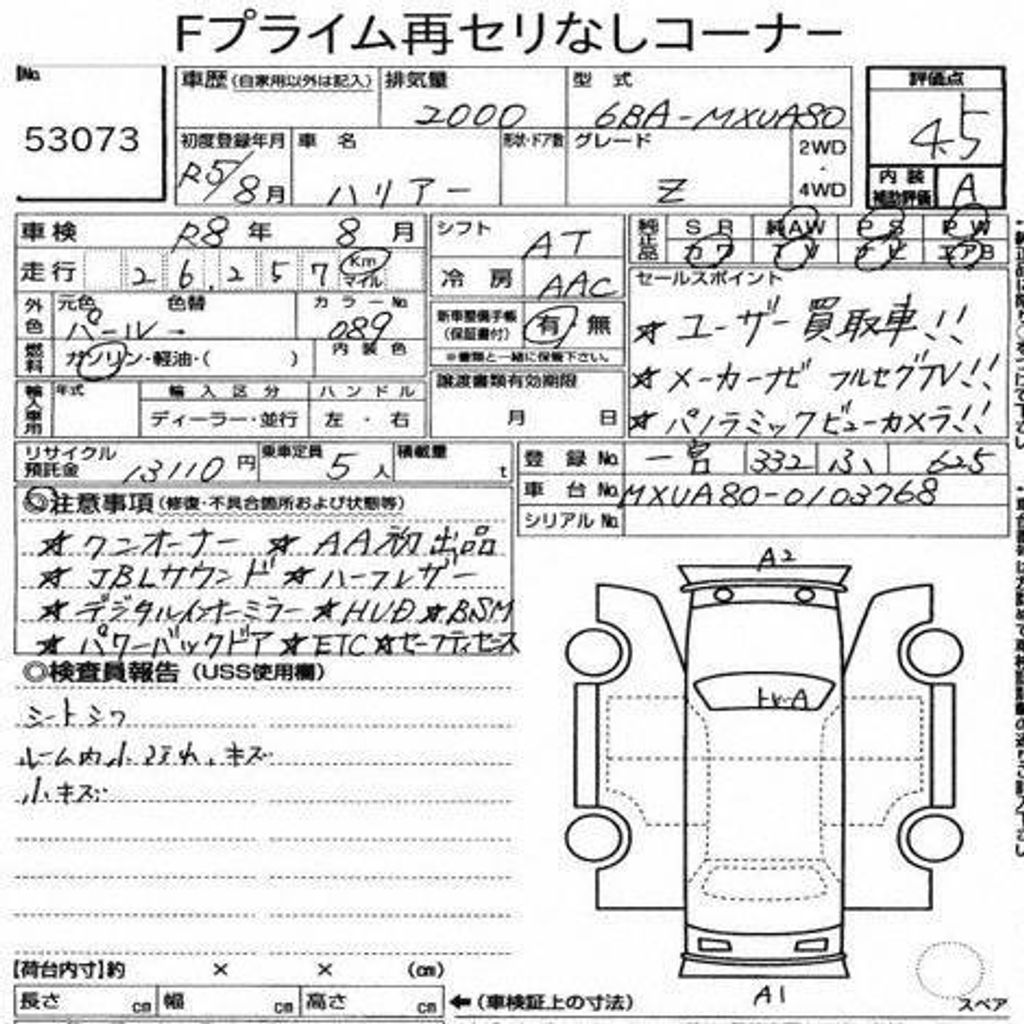 Fプライム再セリなしコーナー
No.
53073
車歴(自家用以外は記入)
排気量
2000
型 式
6BA-MXUA80
評価点
4.5
初度登録年月
R5/8月
車 名
ハリアー
形状・ドア数
グレード
Z
2WD
・
4WD
内 装
補助評価
A
車検
R8 年 8 月
走行
26,257
Km
マイル
シフト
AT
冷 房
AAC
純正品
S R
純AW
P S
P W
カワ
T V
ナビ
エアB
外色
元色
パール
色替
→
カラーNo.
089
燃料
ガソリン・軽油・( )
内 装 色
新車整備手帳
(保証書付)
有・無
※書類と一緒に保管下さい。
セールスポイント
☆ ユーザー買取車!!
☆ メーカーナビ フルセグTV!!
☆ パノラミックビューカメラ!!
輸入車用
年式
輸 入 区 分
ディーラー・並行
ハ ン ド ル
左 ・ 右
譲渡書類有効期限
月 日
リサイクル
預託金
13110 円
乗車定員
5 人
積載量
t
登 録 No.
一宮 332 ふ 625
車 台 No.
MXUA80-0103768
シリアル No.
◎注意事項(修復・不具合箇所および状態等)
☆ ワンオーナー ☆ AA初出品
☆ JBLサウンド ☆ ハーフレザー
☆ デジタルインナーミラー ☆ HUD ☆ BSM
☆ パワーバックドア ☆ ETC ☆ セーフティセンス
◎検査員報告(USS使用欄)
シートシワ
ルーム内小汚れ、キズ
小キズ
A2
トメーA
A1
スペア
【荷台内寸】約 × × (cm)
長さ cm
幅 cm
高さ cm
←(車検証上の寸法)